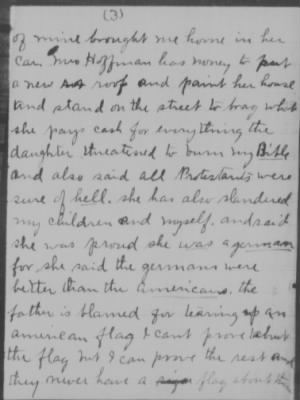 (3)
of mine brought me home in her
car. Mrs Hoffman has money to put
a new roof and paint her house
and stand on the street to brag whit
she pays cash for everything the
daughter threatened to burn my Bible
and also said all Protestants were
sure of hell. she has also slandered
my children and myself. and said
she was proud she was a german
for she said the germans were
better than the americans. the
father is blamed for tearing up an
american flag I cant prove about
the flag but I can prove the rest and
they never have a flag about the